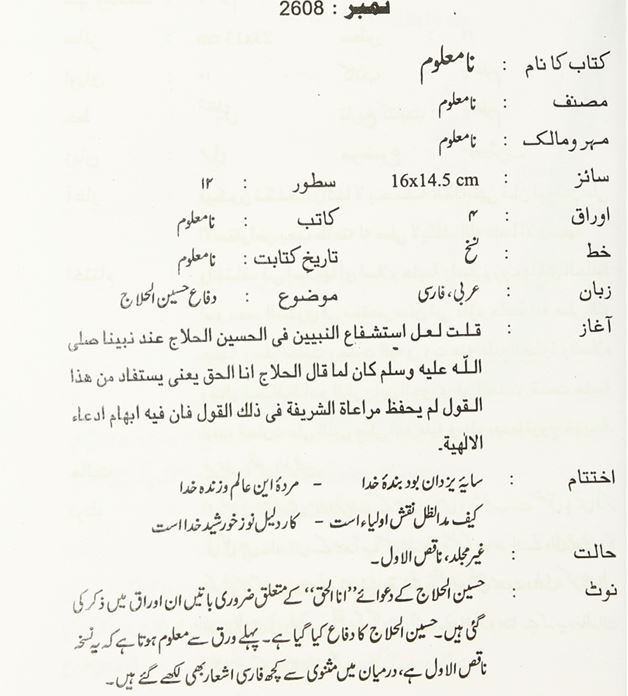 نمبر : 2608
کتاب کا نام : نامعلوم
مصنف : نامعلوم
مہر و مالک : نامعلوم
سائز : 16x14.5 cm سطور : ۱۲
اوراق : ۴ کاتب : نامعلوم
خط : نسخ تاریخ کتابت : نامعلوم
زبان : عربی، فارسی موضوع : دفاع حسین الحلاج
آغاز : قلت لعل استشفاع النبیین فی الحسین الحلاج عند نبینا صلی
اللّه علیه وسلم کان لما قال الحلاج انا الحق یعنی یستفاد من هذا
القول لم یحفظ مراعاة الشریفة فی ذلك القول فان فیه ابهام ادعاء
الالهیة۔
اختتام : سایۂ یزدان بود بندۂ خدا – مردۂ این عالم وزندہ خدا
کیف مدالظل نقش اولیاء است – کار دلیل نوز خورشید خدا است
حالت : غیر مجلد، ناقص الاول۔
نوٹ : حسین الحلاج کے دعوائے ”انا الحق“ کے متعلق ضروری باتیں ان اوراق میں ذکر کی
گئی ہیں۔ حسین الحلاج کا دفاع کیا گیا ہے۔ پہلے ورق سے معلوم ہوتا ہے کہ یہ نسخہ
ناقص الاول ہے، درمیان میں مثنوی سے کچھ فارسی اشعار بھی لکھے گئے ہیں۔